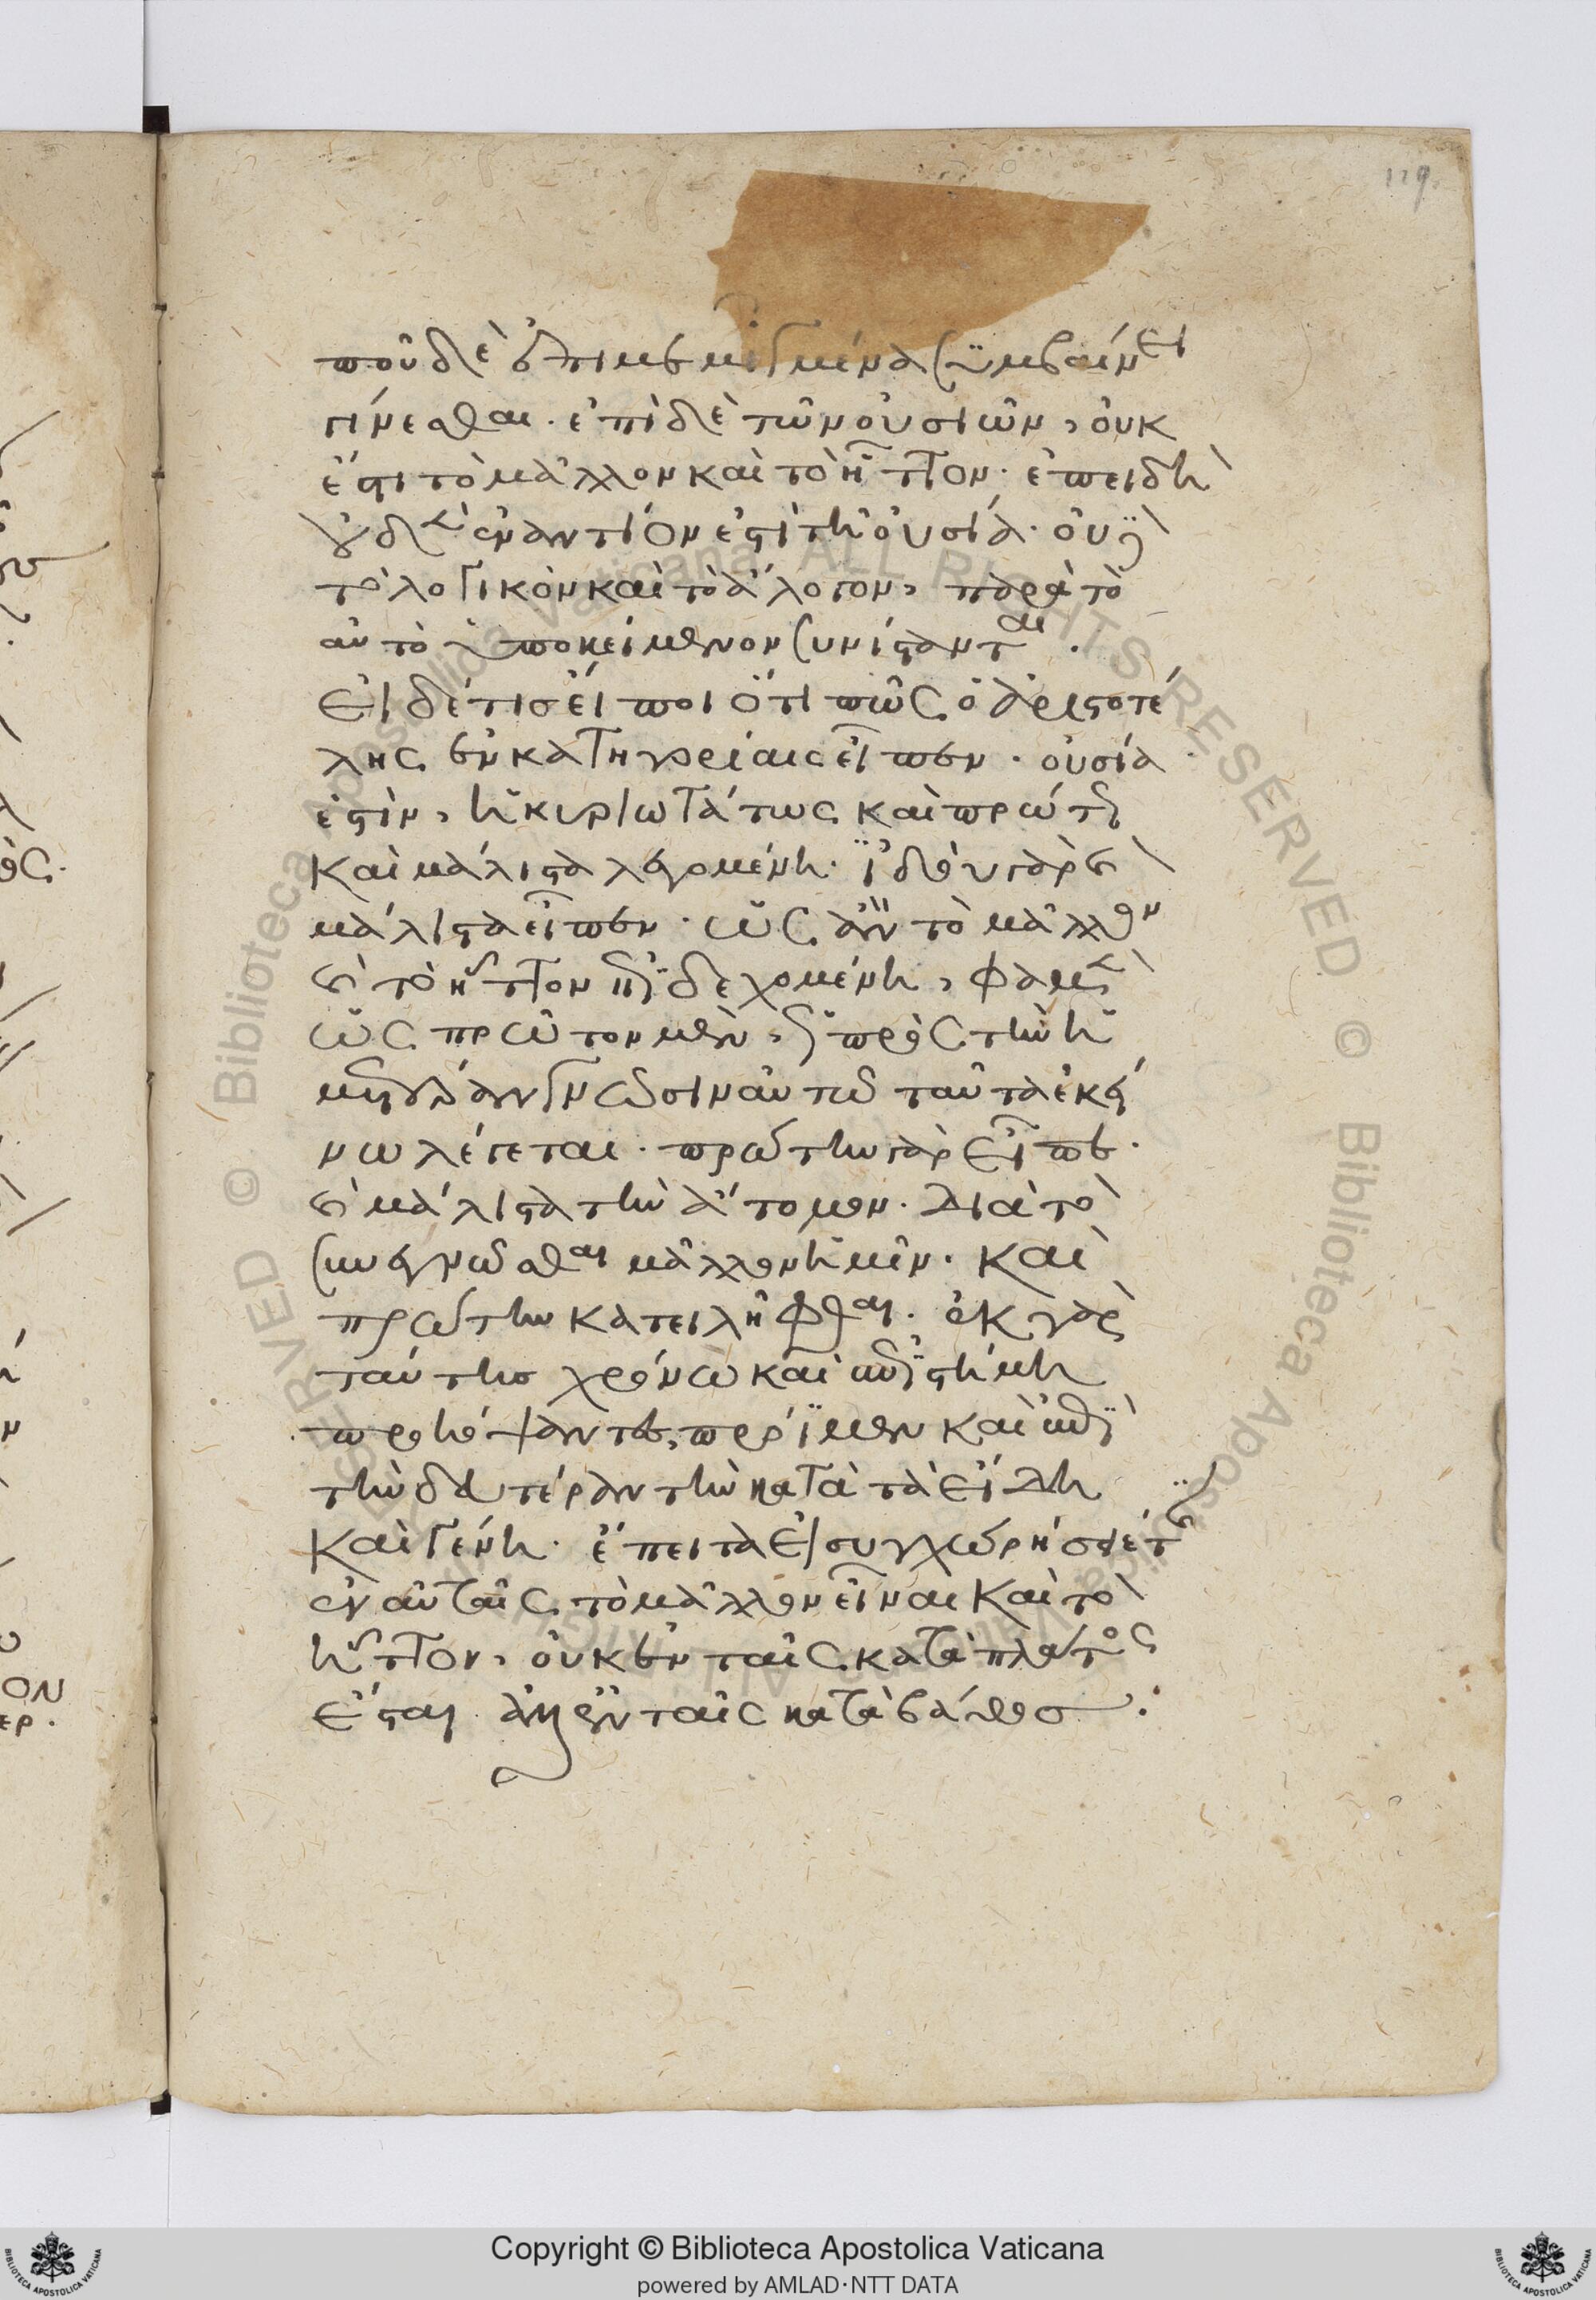 119
που δὲ ἐπιμεμιγμένα συμβαίνει
γίνεσθαι. ἐπὶ δὲ τῶν οὐσιῶν, οὐκ
ἔστι τὸ μᾶλλον καὶ τὸ ἧττον. ἐπειδὴ
οὐδὲ ἐναντίον ἐστὶ τῆ οὐσία. οὐ γὰρ
τὸ λογικὸν καὶ τὸ ἄλογον, παρὰ τὸ
αὐτὸ ὑποκείμενον συνίστανται.
Εἰ δέ τισ εἴποι ὅτι πῶς ὁ ἀριστοτέ
λης ἐν κατηγορίαις εἶπεν. οὐσία
ἐστὶν, ἡ κυριωτάτως καὶ πρώτως
καὶ μάλιστα λεγομένη. ἰδοὺ γὰρ καὶ
μάλιστα εἶπεν. ὡς ἂν τὸ μᾶλλον
καὶ τὸ ἧττον ἐπιδεχομένη, φαμὲν
ὡς πρῶτον μὲν, πρὸς τὴν ἡ
γνωσιν αὐτῶ ταῦτα ἐκεί
νω λέγεται. πρώτην γὰρ εἶπε.
καὶ μάλιστα τὴν ἄτομον. διὰ τὸ
συνεγνῶσθαι μᾶλλον ἡμῖν. καὶ
πρώτην κατειλῆφθαι. ἐκ γὰρ
ταύτησ χρόνω καὶ ἐπιστήμη
προκόψαντες, πρόϊμεν καὶ ἐπὶ
τὴν δευτέραν τὴν κατὰ τὰ εἴδη
καὶ γένη. ἔπειτα εἰ συγχωρήσαιεν
ἐν αὐταῖς τὸ μᾶλλον εἶναι καὶ τὸ
ἧττον, οὐκ ἐν ταῖς κατὰ πλάτος
ἔσται ἀλλ' ἐν ταῖς κατὰ βάθοσ.
ον
ερ.
Copyright © Biblioteca Apostolica Vaticana
powered by AMLAD·NTT DATA